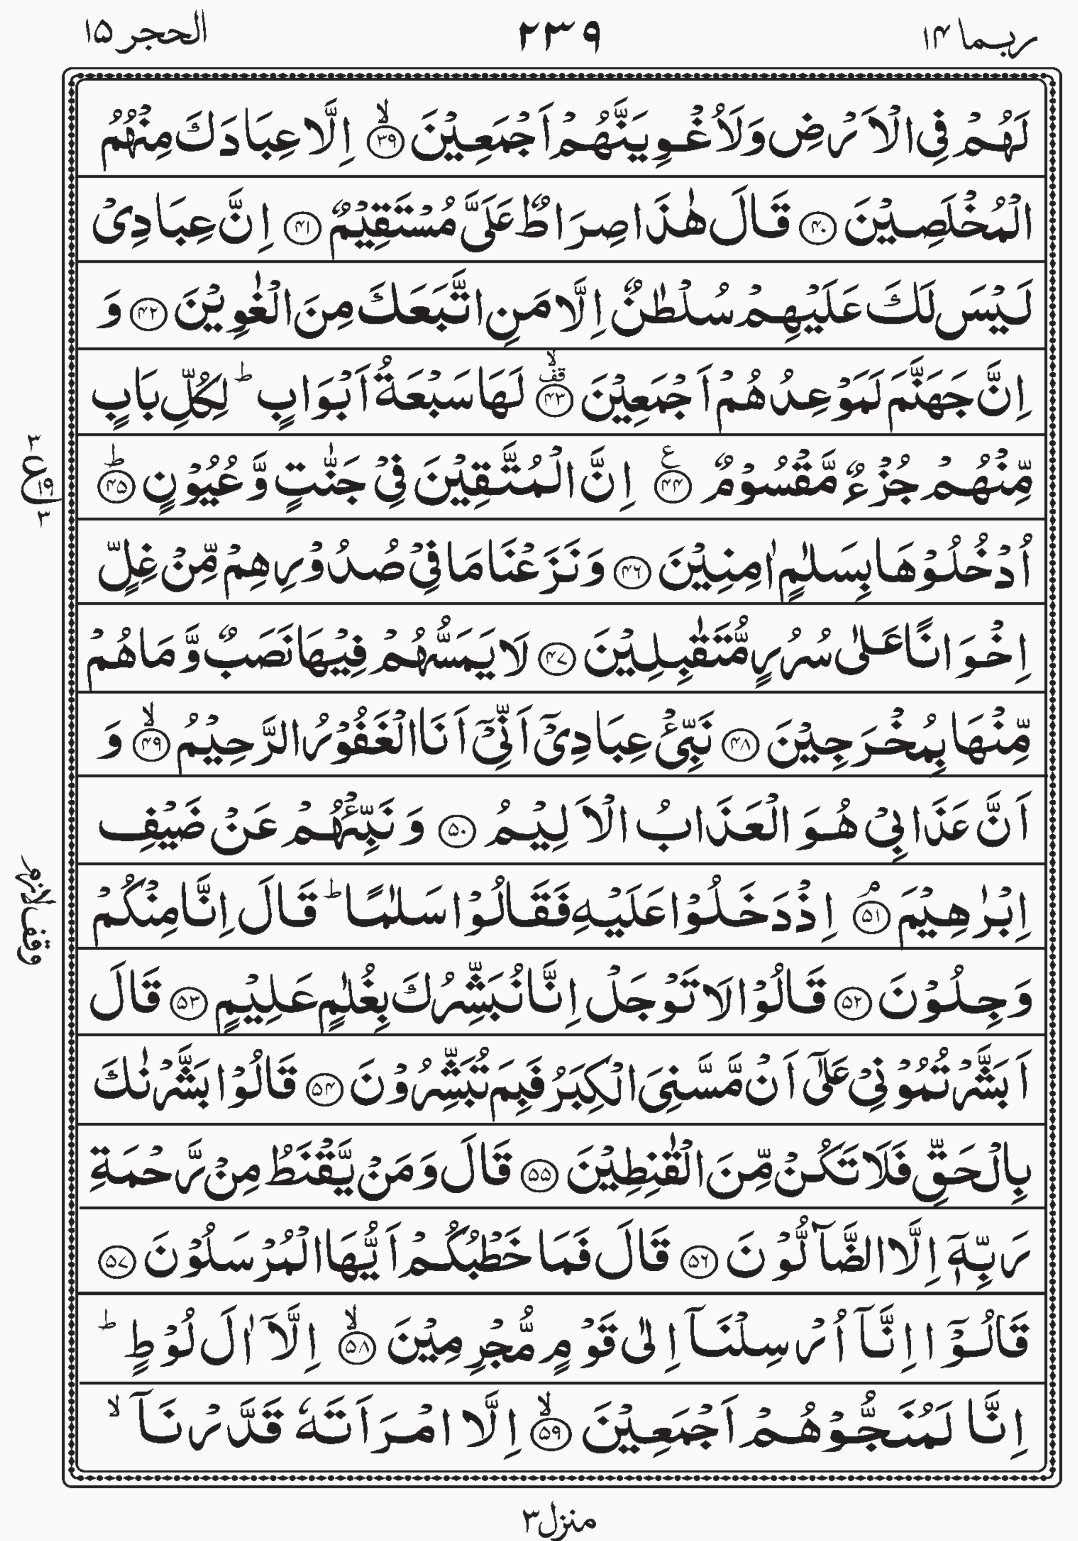 ربما ۱۴
۲۳۹
الحجر ۱۵
لَهُمۡ فِى الۡاَرۡضِ وَلَاُغۡوِيَنَّهُمۡ اَجۡمَعِيۡنَۙ ﴿۳۹﴾ اِلَّا عِبَادَكَ مِنۡهُمُ
الۡمُخۡلَصِيۡنَ ﴿۴۰﴾ قَالَ هٰذَا صِرَاطٌ عَلَىَّ مُسۡتَقِيۡمٌ ﴿۴۱﴾ اِنَّ عِبَادِىۡ
لَيۡسَ لَكَ عَلَيۡهِمۡ سُلۡطٰنٌ اِلَّا مَنِ اتَّبَعَكَ مِنَ الۡغٰوِيۡنَ ﴿۴۲﴾ وَ
اِنَّ جَهَنَّمَ لَمَوۡعِدُهُمۡ اَجۡمَعِيۡنَۙ قف ﴿۴۳﴾ لَهَا سَبۡعَةُ اَبۡوَابٍؕ لِكُلِّ بَابٍ
مِّنۡهُمۡ جُزۡءٌ مَّقۡسُوۡمٌ ع ﴿۴۴﴾ اِنَّ الۡمُتَّقِيۡنَ فِىۡ جَنّٰتٍ وَّعُيُوۡنٍؕ ﴿۴۵﴾
۳ ع ۱۹ ۳
اُدۡخُلُوۡهَا بِسَلٰمٍ اٰمِنِيۡنَ ﴿۴۶﴾ وَنَزَعۡنَا مَا فِىۡ صُدُوۡرِهِمۡ مِّنۡ غِلٍّ
اِخۡوَانًا عَلٰى سُرُرٍ مُّتَقٰبِلِيۡنَ ﴿۴۷﴾ لَا يَمَسُّهُمۡ فِيۡهَا نَصَبٌ وَّمَا هُمۡ
مِّنۡهَا بِمُخۡرَجِيۡنَ ﴿۴۸﴾ نَبِّئۡ عِبَادِىۡۤ اَنِّىۡۤ اَنَا الۡغَفُوۡرُ الرَّحِيۡمُۙ ﴿۴۹﴾ وَ
اَنَّ عَذَابِىۡ هُوَ الۡعَذَابُ الۡاَلِيۡمُ ﴿۵۰﴾ وَنَبِّئۡهُمۡ عَنۡ ضَيۡفِ
اِبۡرٰهِيۡمَۘ ﴿۵۱﴾ اِذۡ دَخَلُوۡا عَلَيۡهِ فَقَالُوۡا سَلٰمًاؕ قَالَ اِنَّا مِنۡكُمۡ
وقف لازم
وَجِلُوۡنَ ﴿۵۲﴾ قَالُوۡا لَا تَوۡجَلۡ اِنَّا نُبَشِّرُكَ بِغُلٰمٍ عَلِيۡمٍ ﴿۵۳﴾ قَالَ
اَبَشَّرۡتُمُوۡنِىۡ عَلٰٓى اَنۡ مَّسَّنِىَ الۡكِبَرُ فَبِمَ تُبَشِّرُوۡنَ ﴿۵۴﴾ قَالُوۡا بَشَّرۡنٰكَ
بِالۡحَقِّ فَلَا تَكُنۡ مِّنَ الۡقٰنِطِيۡنَ ﴿۵۵﴾ قَالَ وَمَنۡ يَّقۡنَطُ مِنۡ رَّحۡمَةِ
رَبِّهٖۤ اِلَّا الضَّآلُّوۡنَ ﴿۵۶﴾ قَالَ فَمَا خَطۡبُكُمۡ اَيُّهَا الۡمُرۡسَلُوۡنَ ﴿۵۷﴾
قَالُوۡۤا اِنَّاۤ اُرۡسِلۡنَاۤ اِلٰى قَوۡمٍ مُّجۡرِمِيۡنَۙ ﴿۵۸﴾ اِلَّاۤ اٰلَ لُوۡطٍؕ
اِنَّا لَمُنَجُّوۡهُمۡ اَجۡمَعِيۡنَۙ ﴿۵۹﴾ اِلَّا امۡرَاَتَهٗ قَدَّرۡنَاۤۙ
منزل ۳